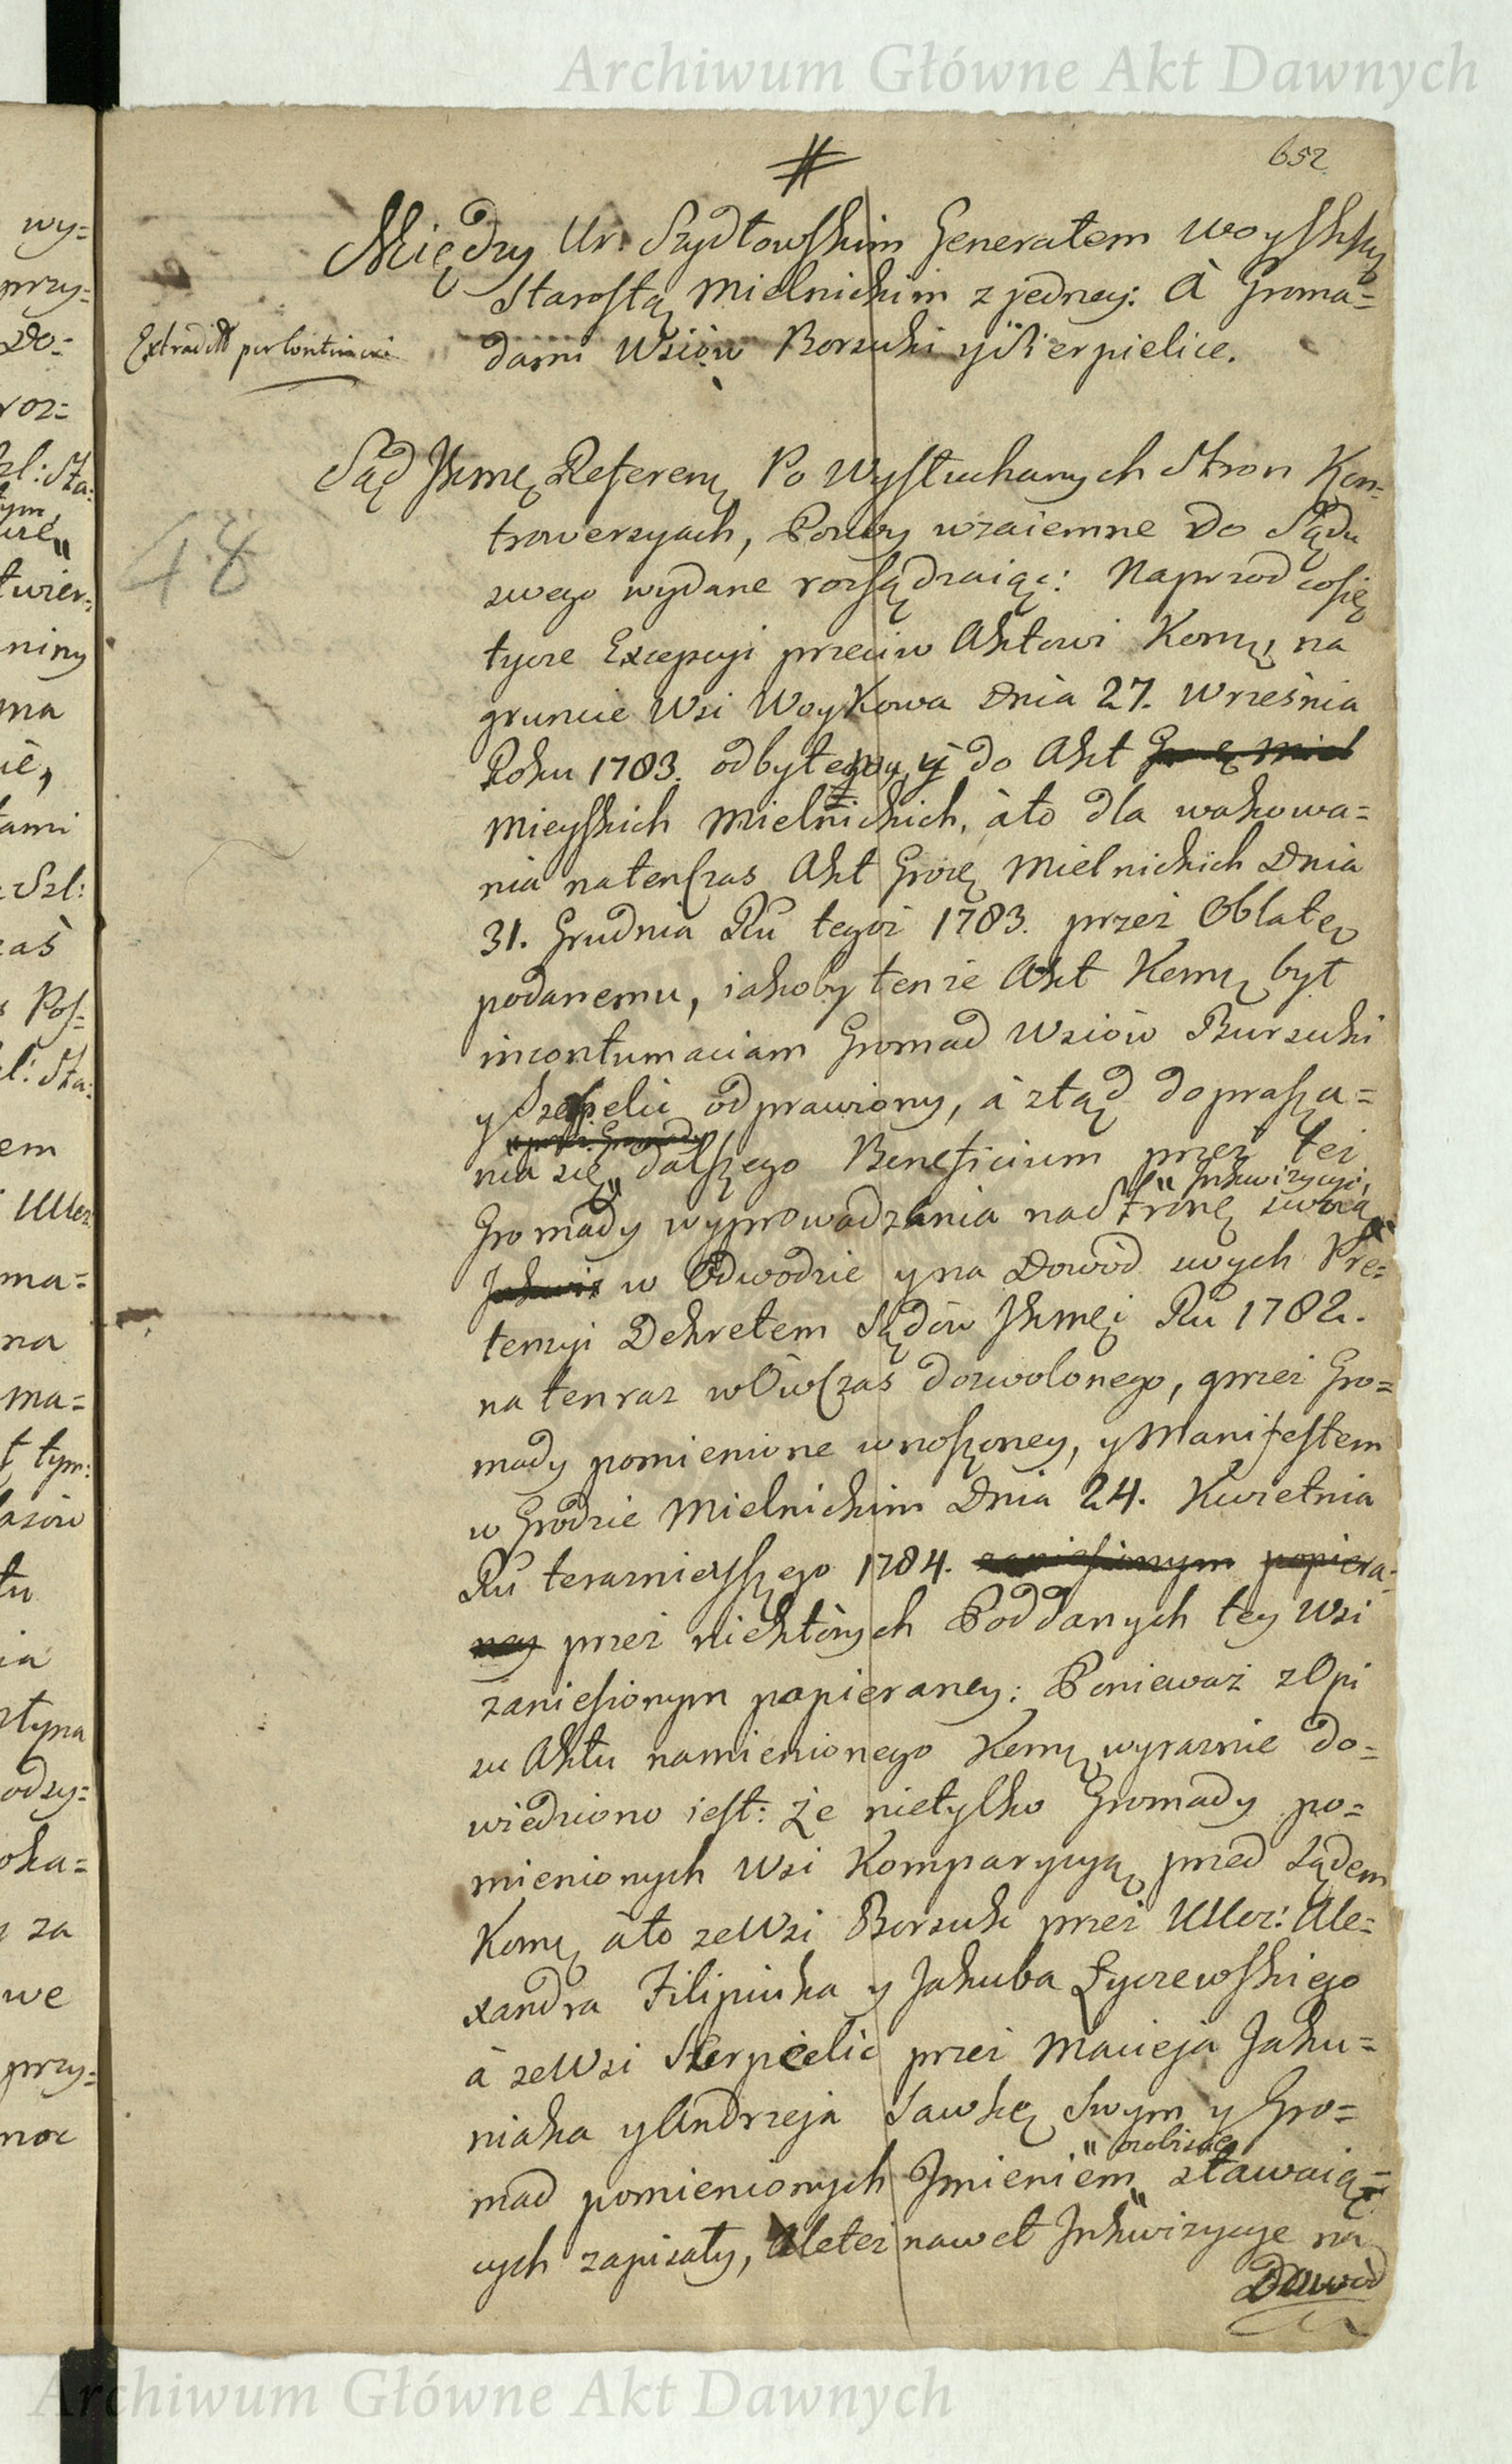 Archiwum Główne Akt Dawnych
652
Między Ur: Szydłowskim Generałem Woyskkę
Starostą Mielnickim z jedney: à Groma=
dami Wsiów Borsuki y Sierpielice.
Extradtt per Contin
48
Sąd JKmę Referenę Po Wysłuchanych Stron Kon=
trowersyach, Pozwy wzaiemne do Sądu
swego wydane rozsądzaiąc: Naprzod cosię
tycze Excepcyi przeciw Aktowi Komę, na
gruncie Wsi Woykowa Dnia 27. Września
Roku 1783. odbytemu, y do Akt
Mieyskich Mielnickich, àto dla wakowa=
nia natenczas Akt Grodz Mielnickich Dnia
31. Grudnia Ru tegoż 1783. przez Oblatę
podanemu, iakoby tenże Akt Komę był
incontumaciam Gromad Wsiów Bursuki
y Szepelic odprawiony, à ztąd doprasza=
nia się dalszego Beneficium przez też
Inkwizycyi,
Gromady wyprowadzenia na Stronę swoią
w Odwodzie y na Dowód swych Pre=
tensyi Dekretem Sądów JKmęi Ru 1782.
na tenraz wówczas dozwolonego, przez Gro=
mady pomienione wnoszoney, y Manifestem
w Grodzie Mielnickim Dnia 24. Kwietnia
Ru teraznieyszego 1784. zaniesionym popiera=
ney przez niektórych Poddanych tey Wsi
zaniesionym popieraney: Ponieważ z Opi
su Aktu namienionego Komę wyraznie do=
wiedziono iest: że nietylko Gromady po=
mienionych Wsi Komparycyą przed Sądem
Komę àto ze Wsi Borsuk przez UUcz: Ale=
xandra Filipiuka y Jakuba Łyczewskiego
à ze Wsi Sierpielic przez Macieja Jaku=
niaka y Andrzeja Sawkę Swym y Gro=
osobiście
mad pomienionych Jmieniem stawaią=
cych zapisały, Ale też nawet Jnkwizycye na
Dowód
wy=
przy=
do=
roz=
twier=
niny
ma
ami
Szl:
Pos=
em
ma=
na
ma=
t tym:
tu
ia
odzy=
oka=
za
we
przy=
moc
Archiwum Główne Akt Dawnych